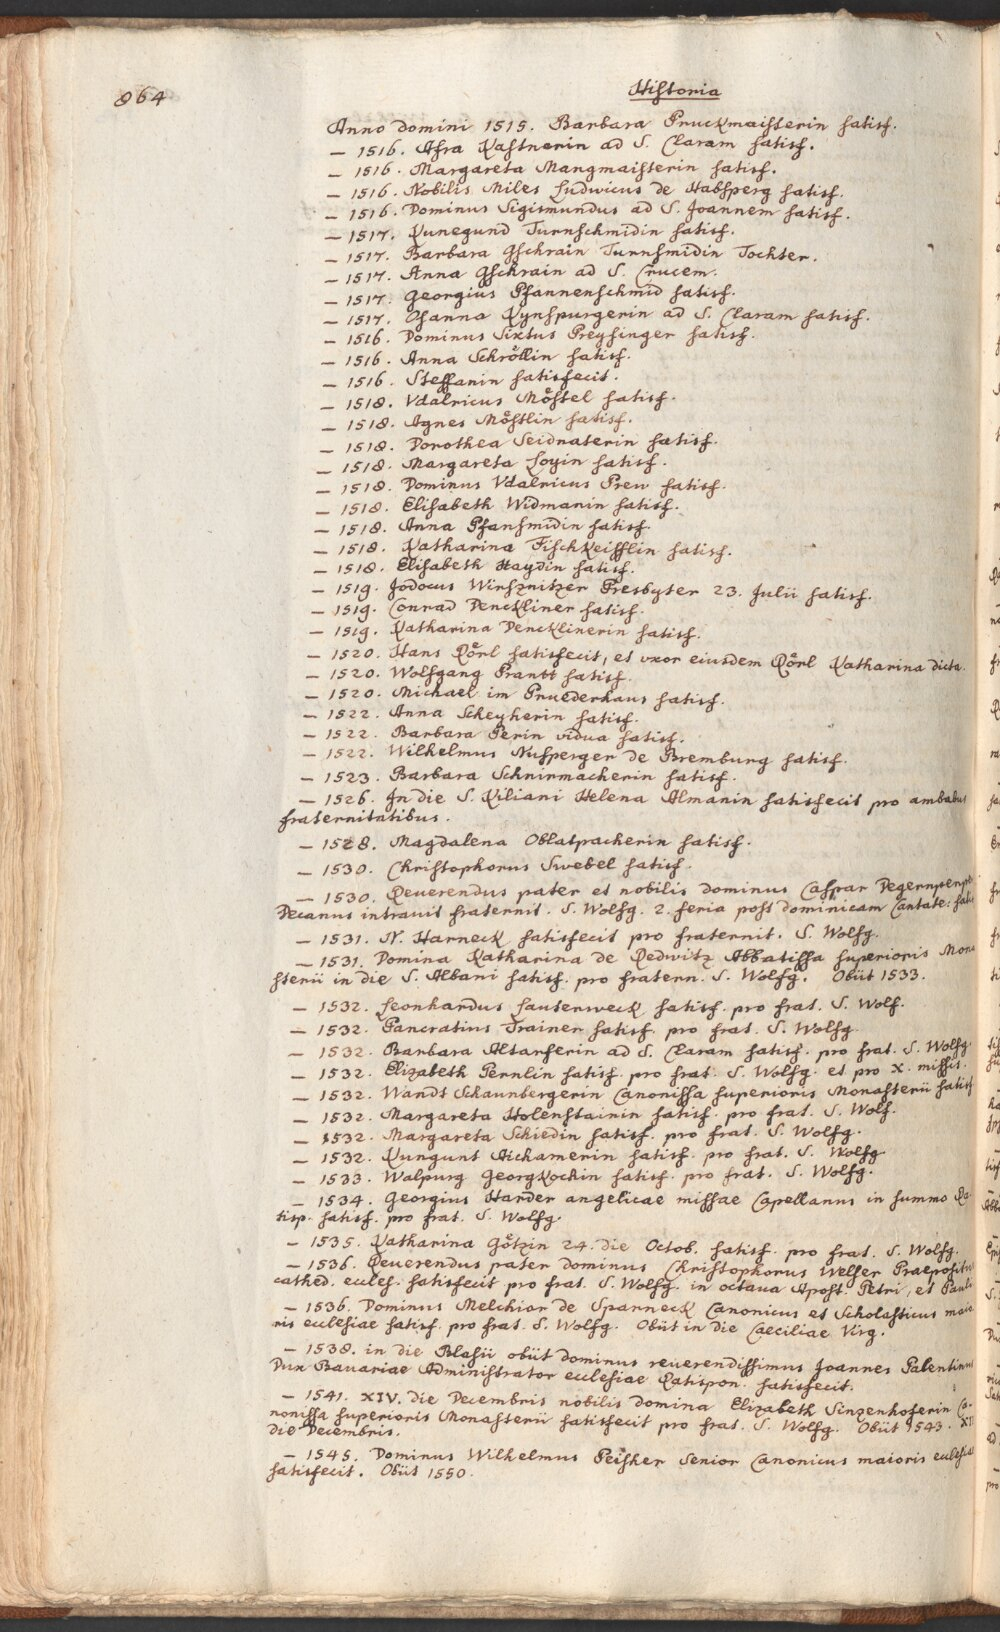 864
Historia
Anno domini 1515. Barbara Pruckmaisterin satisf.
— 1516. Afra Kastnerin ad S. Claram satisf.
— 1516. Margareta Mangmaisterin satisf.
— 1516. Nobilis Miles Ludwicus de Habsperg satisf.
— 1516. Dominus Sigismundus ad S. Joannem satisf.
— 1517. Kunegund Turnschmidin satisf.
— 1517. Barbara Gschrain Turnsmidin Tochter.
— 1517. Anna Gschrain ad S. Crucem.
— 1517. Georgius Pfannenschmid satisf.
— 1517. Osanna Kynspurgerin ad S. Claram satisf.
— 1516. Dominus Sixtus Preysinger satisf.
— 1516. Anna Schröllin satisf.
— 1516. Steffanin satisfecit.
— 1518. Vdalricus Möstel satisf.
— 1518. Agnes Möstlin satisf.
— 1518. Dorothea Seidnaterin satisf.
— 1518. Margareta Loyin satisf.
— 1518. Dominus Vdalricus Prew satisf.
— 1518. Elisabeth Widmanin satisf.
— 1518. Anna Pfansmidin satisf.
— 1518. Katharina Fischkeifflin satisf.
— 1518. Elisabeth Haydin satisf.
— 1519. Jodocus Wirsznitzer Presbyter 23. Julii satisf.
— 1519. Conrad Denckliner satisf.
— 1519. Katharina Dencklinerin satisf.
— 1520. Hans Rörl satisfecit, et vxor eiusdem Rörl Katharina dicta.
— 1520. Wolfgang Prantt satisf.
— 1520. Michael im Pruederhaus satisf.
— 1522. Anna Scheyherin satisf.
— 1522. Barbara Perin vidua satisf.
— 1522. Wilhelmus Nusperger de Bremburg satisf.
— 1523. Barbara Schnirmacherin satisf.
— 1526. In die S. Kiliani Helena Almanin satisfecit pro ambabus
fraternitatibus.
— 1528. Magdalena Oblatpacherin satisf.
— 1530. Christophorus Swebel satisf.
— 1530. Reuerendus pater et nobilis dominus Caspar
Decanus intrauit fraternit. S. Wolfg. 2. feria post dominicam Cantate:
— 1531. N. Harneck satisfecit pro fraternit. S. Wolfg.
— 1531. Domina Katharina de Redwitz Abbatissa superioris Mona
sterii in die S. Albani satisf. pro fratern. S. Wolfg. Obiit 1533.
— 1532. Leonhardus Lauterweck satisf. pro frat. S. Wolf.
— 1532. Pancratius Trainer satisf. pro frat. S. Wolfg.
— 1532. Barbara Altarserin ad S. Claram satisf. pro frat. S. Wolfg.
— 1532. Elizabeth Pernlin satisf. pro frat. S. Wolfg. et pro X. missis.
— 1532. Wandt Schaunbergerin Canonissa superioris Monasterii satisf
— 1532. Margareta Holenstainin satisf. pro frat. S. Wolf.
— 1532. Margareta Schiedin satisf. pro frat. S. Wolfg.
— 1532. Kungunt Aichamerin satisf. pro frat. S. Wolfg
— 1533. Walpurg Georgkochin satisf. pro frat. S. Wolfg.
— 1534. Georgius Harder angelicae missae Capellanus in summo Ra
tisp. satisf. pro frat. S. Wolfg.
— 1535. Katharina Götzin 24. die Octob. satisf. pro frat. S. Wolfg.
— 1536. Reuerendus pater dominus Christophorus Welser Praepositus
cathed. eccles. satisfecit pro frat. S. Wolfg. in octaua Apost. Petri, et Pauli
— 1536. Dominus Melchior de Sparneck Canonicus et Scholasticus maio
ris ecclesiae satisf. pro frat. S. Wolfg. Obiit in die Caeciliae Virg.
— 1538. in die Blasii obiit dominus reuerendissimus Joannes Palentinus
Dux Bauariae Administrator ecclesiae Ratispon. satisfecit.
— 1541. XIV. die Decembris nobilis domina Elizabeth Sinzenhoferin Ca-
nonissa superioris Monasterii satisfecit pro frat. S. Wolfg. Obiit 1543.
die Decembris.
— 1545. Dominus Wilhelmus Peisker Senior Canonicus maioris ecclesiae
satisfecit. Obiit 1550.